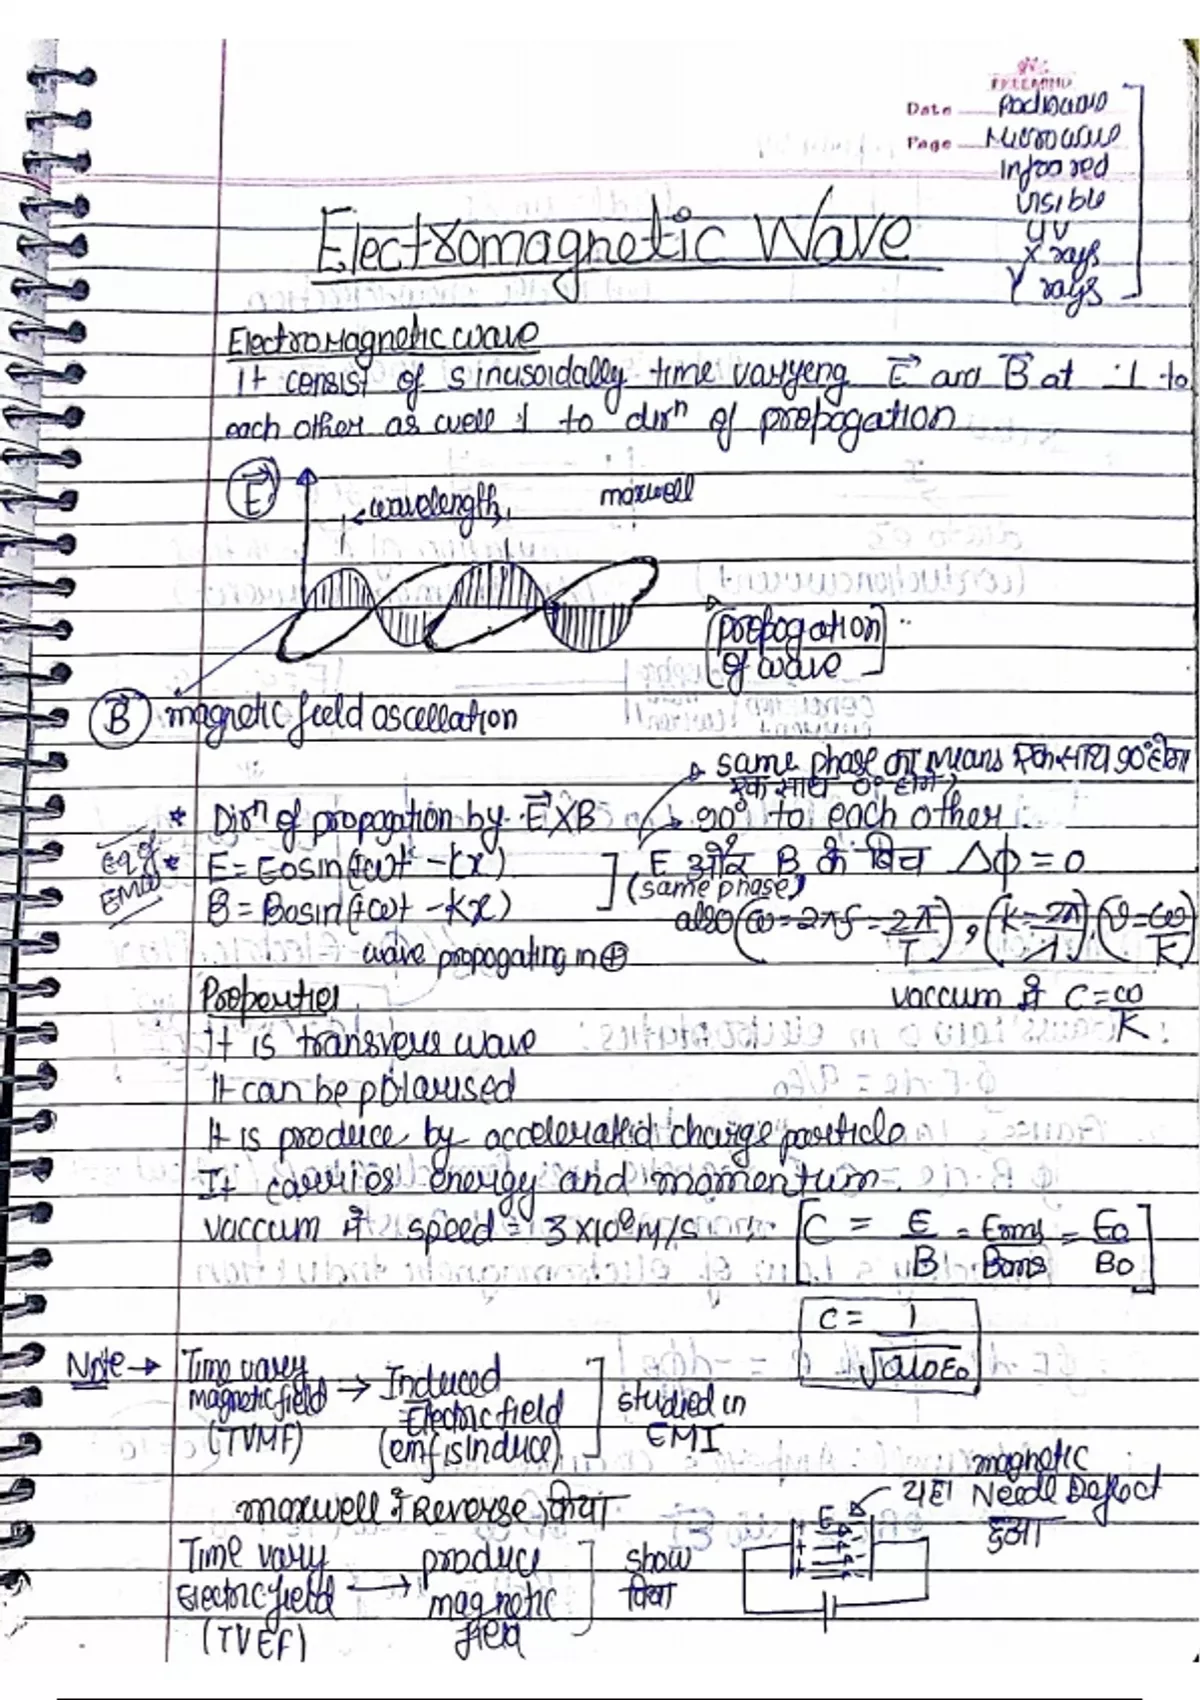 Date
Page
Radiowave
Microwave
Infoored
visible
UV
X rays
γ rays
Electromagnetic Wave
Electromagnetic wave
It consist of sinusoidally time varyeng E⃗ and B⃗ at ⊥ to
each other as well ⊥ to dirⁿ of propogation
E⃗
wavelength
maxwell
propogation
of wave
B⃗ magnetic field oscellation
same phase का means एक साथ 90° होगा
एक साथ 0° होगा
* Dirⁿ of propogation by E⃗XB
90° to each other
Eq of
EMW
* E = Eosin(±ωt - kx)
B = Bosin(±ωt - kx)
(same phase)
E और B के बिच Δϕ = 0
also (ω = 2πf = 2π/T), (k = 2π/λ), (v = ω/k)
wave propogating in ⊕
vaccum में C = ω/K
Properties
It is transvers wave
It can be polarised
It is produce by accelerated charge particle
It carries energy and momentum.
vaccum में speed = 3×10⁸m/s
[C = E/B = Erms/Brms = Eo/Bo]
C = 1/√μoεo
Note → Time vary
magnetic field
(TVMF)
→ Induced
Electric field
(emf is Induce)
studied in
EMI
maxwell ने Reverse किया
Time vary
Electric field
(TVEF)
→ produce
magnetic
field
show
किया
E
magnetic
यहा Needle Deflect
हुआ